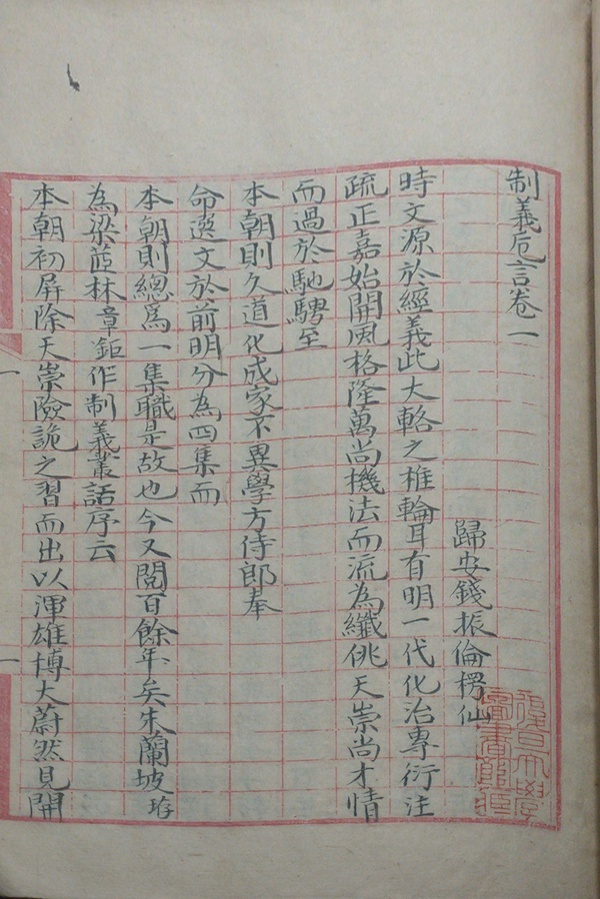 制義卮言卷一
歸安錢振倫楞仙
時文源於經義此大輅之椎輪耳有明一代化治專衍注
疏正嘉始開風格隆萬尚機法而流為纖佻天崇尚才情
而過於馳騁至
本朝則久道化成家不異學方侍郎奉
命選文於前明分為四集而
本朝則總為一集職是故也今又閱百餘年矣朱蘭坡珔
為梁茝林章鉅作制義叢話序云
本朝初屏除天崇險詭之習而出以渾雄博大蔚然見開
一
復旦大學
圖書館藏